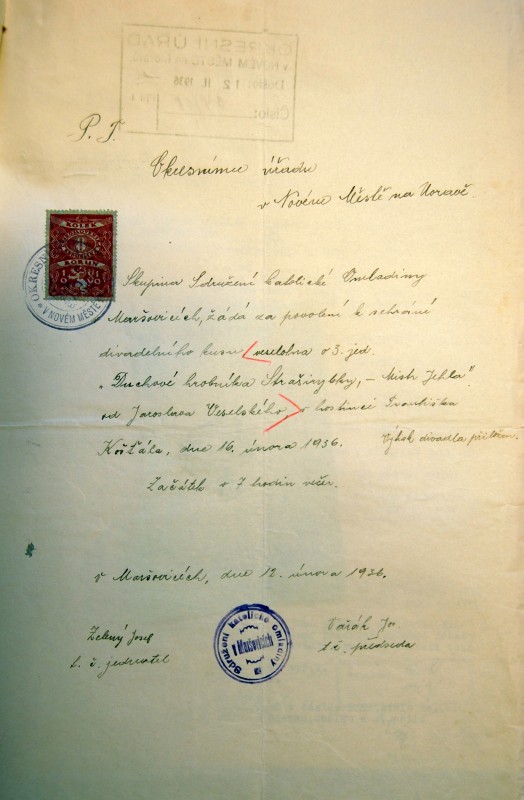 P. T.
Okresnímu úřadu
v Novém Městě na Moravě.
KOLEK
KORUN
OKRESNÍ
V NOVÉM MĚSTĚ
Skupina Sdružení katolické Omladiny
Maršovicích, žádá za povolení k sehrání
divadelního kusu veselohra o 3. jed.
„Duchové hrobníka Straširybky, – Mistr Jehla"
od Jaroslava Veselského, v hostinci Františka
Košťála, dne 16. února 1936. Výtisk divadla přiložen.
Začátek o 7 hodin večer.
v Maršovicích, dne 12. února 1936.
Zelený Josef
t. č. jednatel
Sdružení katolické omladiny
v Maršovicích
Jos.
t. č. předseda
OKRESNÍ ÚŘAD
V NOVÉM MĚSTĚ
Došlo: 12 II 1936
Číslo: